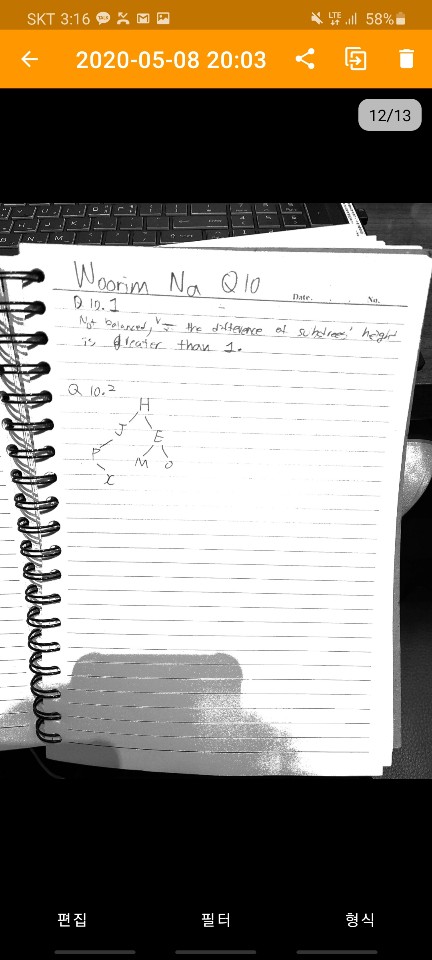 SKT 3:16 58%
LTE
2020-05-08 20:03
12/13
Woorim Na Q10
Date. . . No.
Q 10.1
Not balanced, the difference of subtrees' height
is greater than 1.
Q 10.2
H
J E
P M O
X
편집 필터 형식